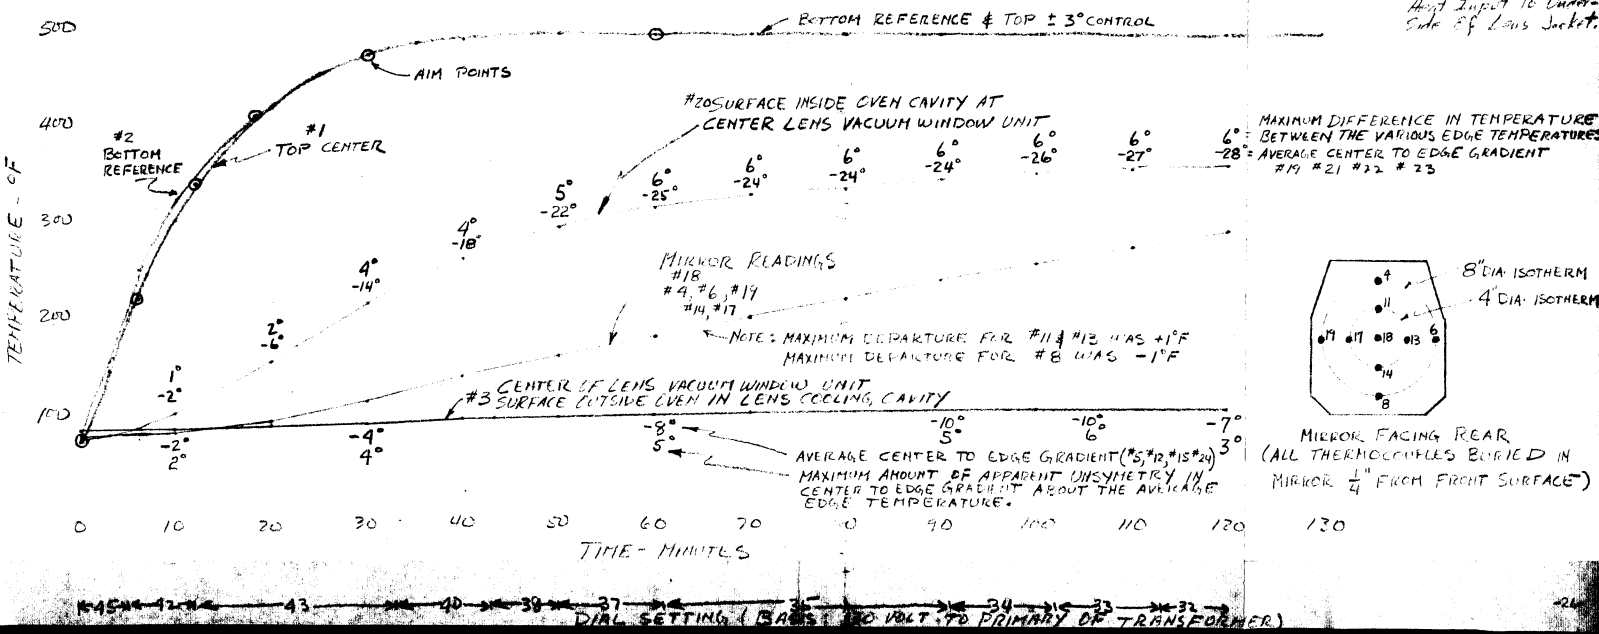 Heat Input To Under-
Side Of Lens Jacket.
500
BOTTOM REFERENCE & TOP ± 3° CONTROL
AIM POINTS
400
#2
BOTTOM
REFERENCE
#1
TOP CENTER
#20 SURFACE INSIDE OVEN CAVITY AT
CENTER LENS VACUUM WINDOW UNIT
MAXIMUM DIFFERENCE IN TEMPERATURE
6° = BETWEEN THE VARIOUS EDGE TEMPERATURES
-28° = AVERAGE CENTER TO EDGE GRADIENT
#19 #21 #22 #23
TEMPERATURE - OF
300
200
100
1°
-2°
2°
-6°
4°
-14°
4°
-18°
5°
-22°
6°
-25°
6°
-24°
6°
-24°
6°
-24°
6°
-26°
6°
-27°
MIRROR READINGS
#18
#4, #6, #19
#14, #17
NOTE: MAXIMUM DEPARTURE FOR #11 & #13 WAS +1°F
MAXIMUM DEPARTURE FOR #8 WAS -1°F
#3 CENTER OF LENS VACUUM WINDOW UNIT
SURFACE OUTSIDE OVEN IN LENS COOLING CAVITY
-2°
2°
-4°
4°
-8°
5°
-10°
5°
-10°
6
-7°
3°
AVERAGE CENTER TO EDGE GRADIENT (#5, #12, #15 #24)
MAXIMUM AMOUNT OF APPARENT UNSYMETRY IN
CENTER TO EDGE GRADIENT ABOUT THE AVERAGE
EDGE TEMPERATURE.
8" DIA. ISOTHERM
4" DIA. ISOTHERM
4
11
19 17 18 13 6
14
8
MIRROR FACING REAR
(ALL THERMOCOUPLES BURIED IN
MIRROR 1/4" FROM FRONT SURFACE)
0 10 20 30 40 50 60 70 90 100 110 120 130
TIME - MINUTES
45 42 43 40 38 37 34 33 32
DIAL SETTING (BASIS: VOLT TO PRIMARY OF TRANSFORMER)